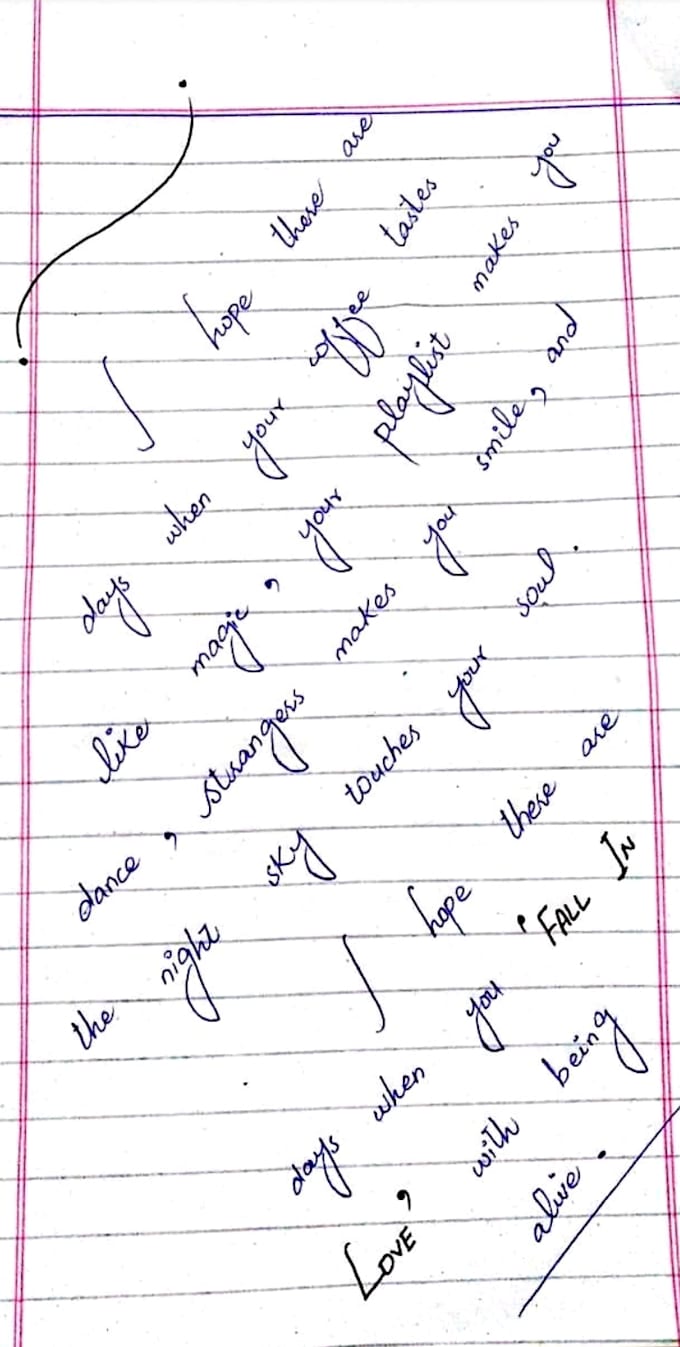 I hope there are
days when your coffee tastes
like magic, your playlist makes you
dance, strangers makes you smile, and
the night sky touches your soul.
I hope there are
days when you 'FALL IN
LOVE' with being
alive.